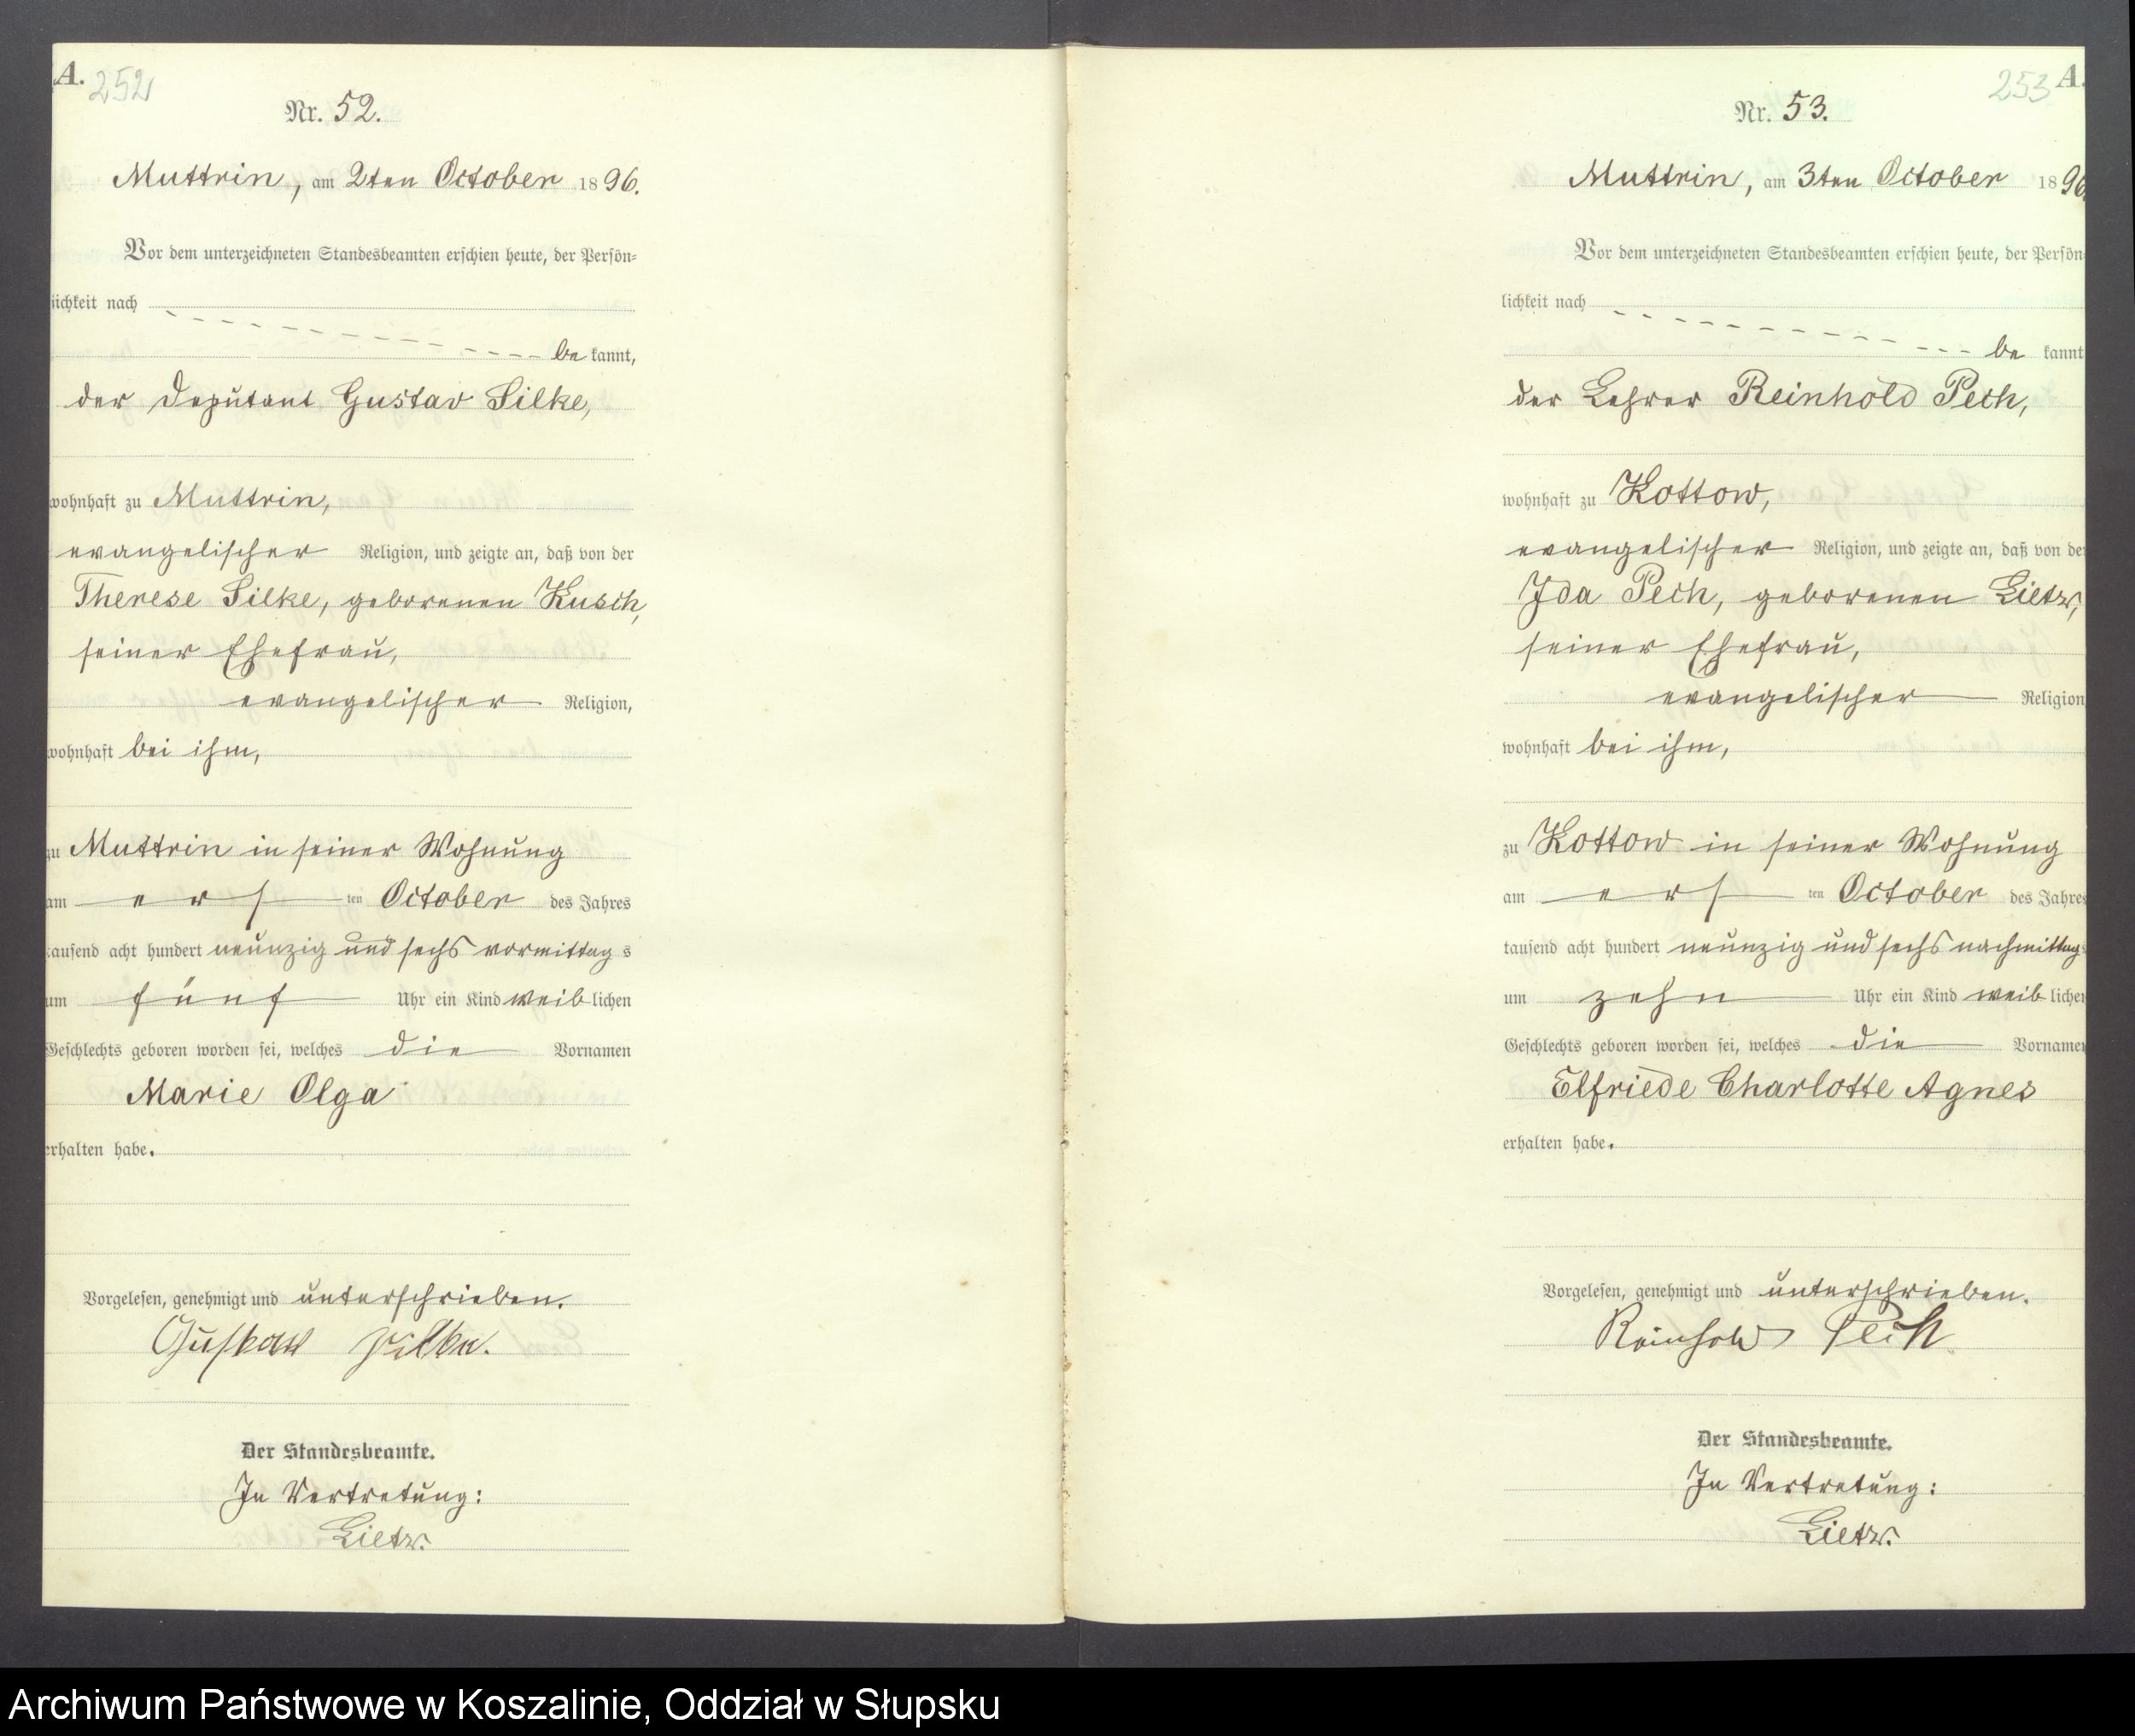 A. 252
Nr. 52.
Muttrin, am 2ten October 1896.
Vor dem unterzeichneten Standesbeamten erschien heute, der Persön-
lichkeit nach
be kannt,
der Deputant Gustav Silke,
wohnhaft zu Muttrin,
evangelischer Religion, und zeigte an, daß von der
Therese Silke, geborenen Kusch,
seiner Ehefrau,
evangelischer Religion,
wohnhaft bei ihm,
zu Muttrin in seiner Wohnung
am ers ten October des Jahres
tausend acht hundert neunzig und sechs vormittag s
um fünf Uhr ein Kind weib lichen
Geschlechts geboren worden sei, welches die Vornamen
Marie Olga
erhalten habe.
Vorgelesen, genehmigt und unterschrieben.
Gustav Silke.
Der Standesbeamte.
In Vertretung:
Lietz.
253 A.
Nr. 53.
Muttrin, am 3ten October 1896.
Vor dem unterzeichneten Standesbeamten erschien heute, der Persön-
lichkeit nach
be kannt
der Lehrer Reinhold Pech,
wohnhaft zu Kottow,
evangelischer Religion, und zeigte an, daß von der
Ida Pech, geborenen Lietz,
seiner Ehefrau,
evangelischer Religion
wohnhaft bei ihm,
zu Kottow in seiner Wohnung
am ers ten October des Jahres
tausend acht hundert neunzig und sechs nachmittags
um zehn Uhr ein Kind weib lichen
Geschlechts geboren worden sei, welches die Vornamen
Elfriede Charlotte Agnes
erhalten habe.
Vorgelesen, genehmigt und unterschrieben.
Reinhold Pech
Der Standesbeamte.
In Vertretung:
Lietz.
Archiwum Państwowe w Koszalinie, Oddział w Słupsku